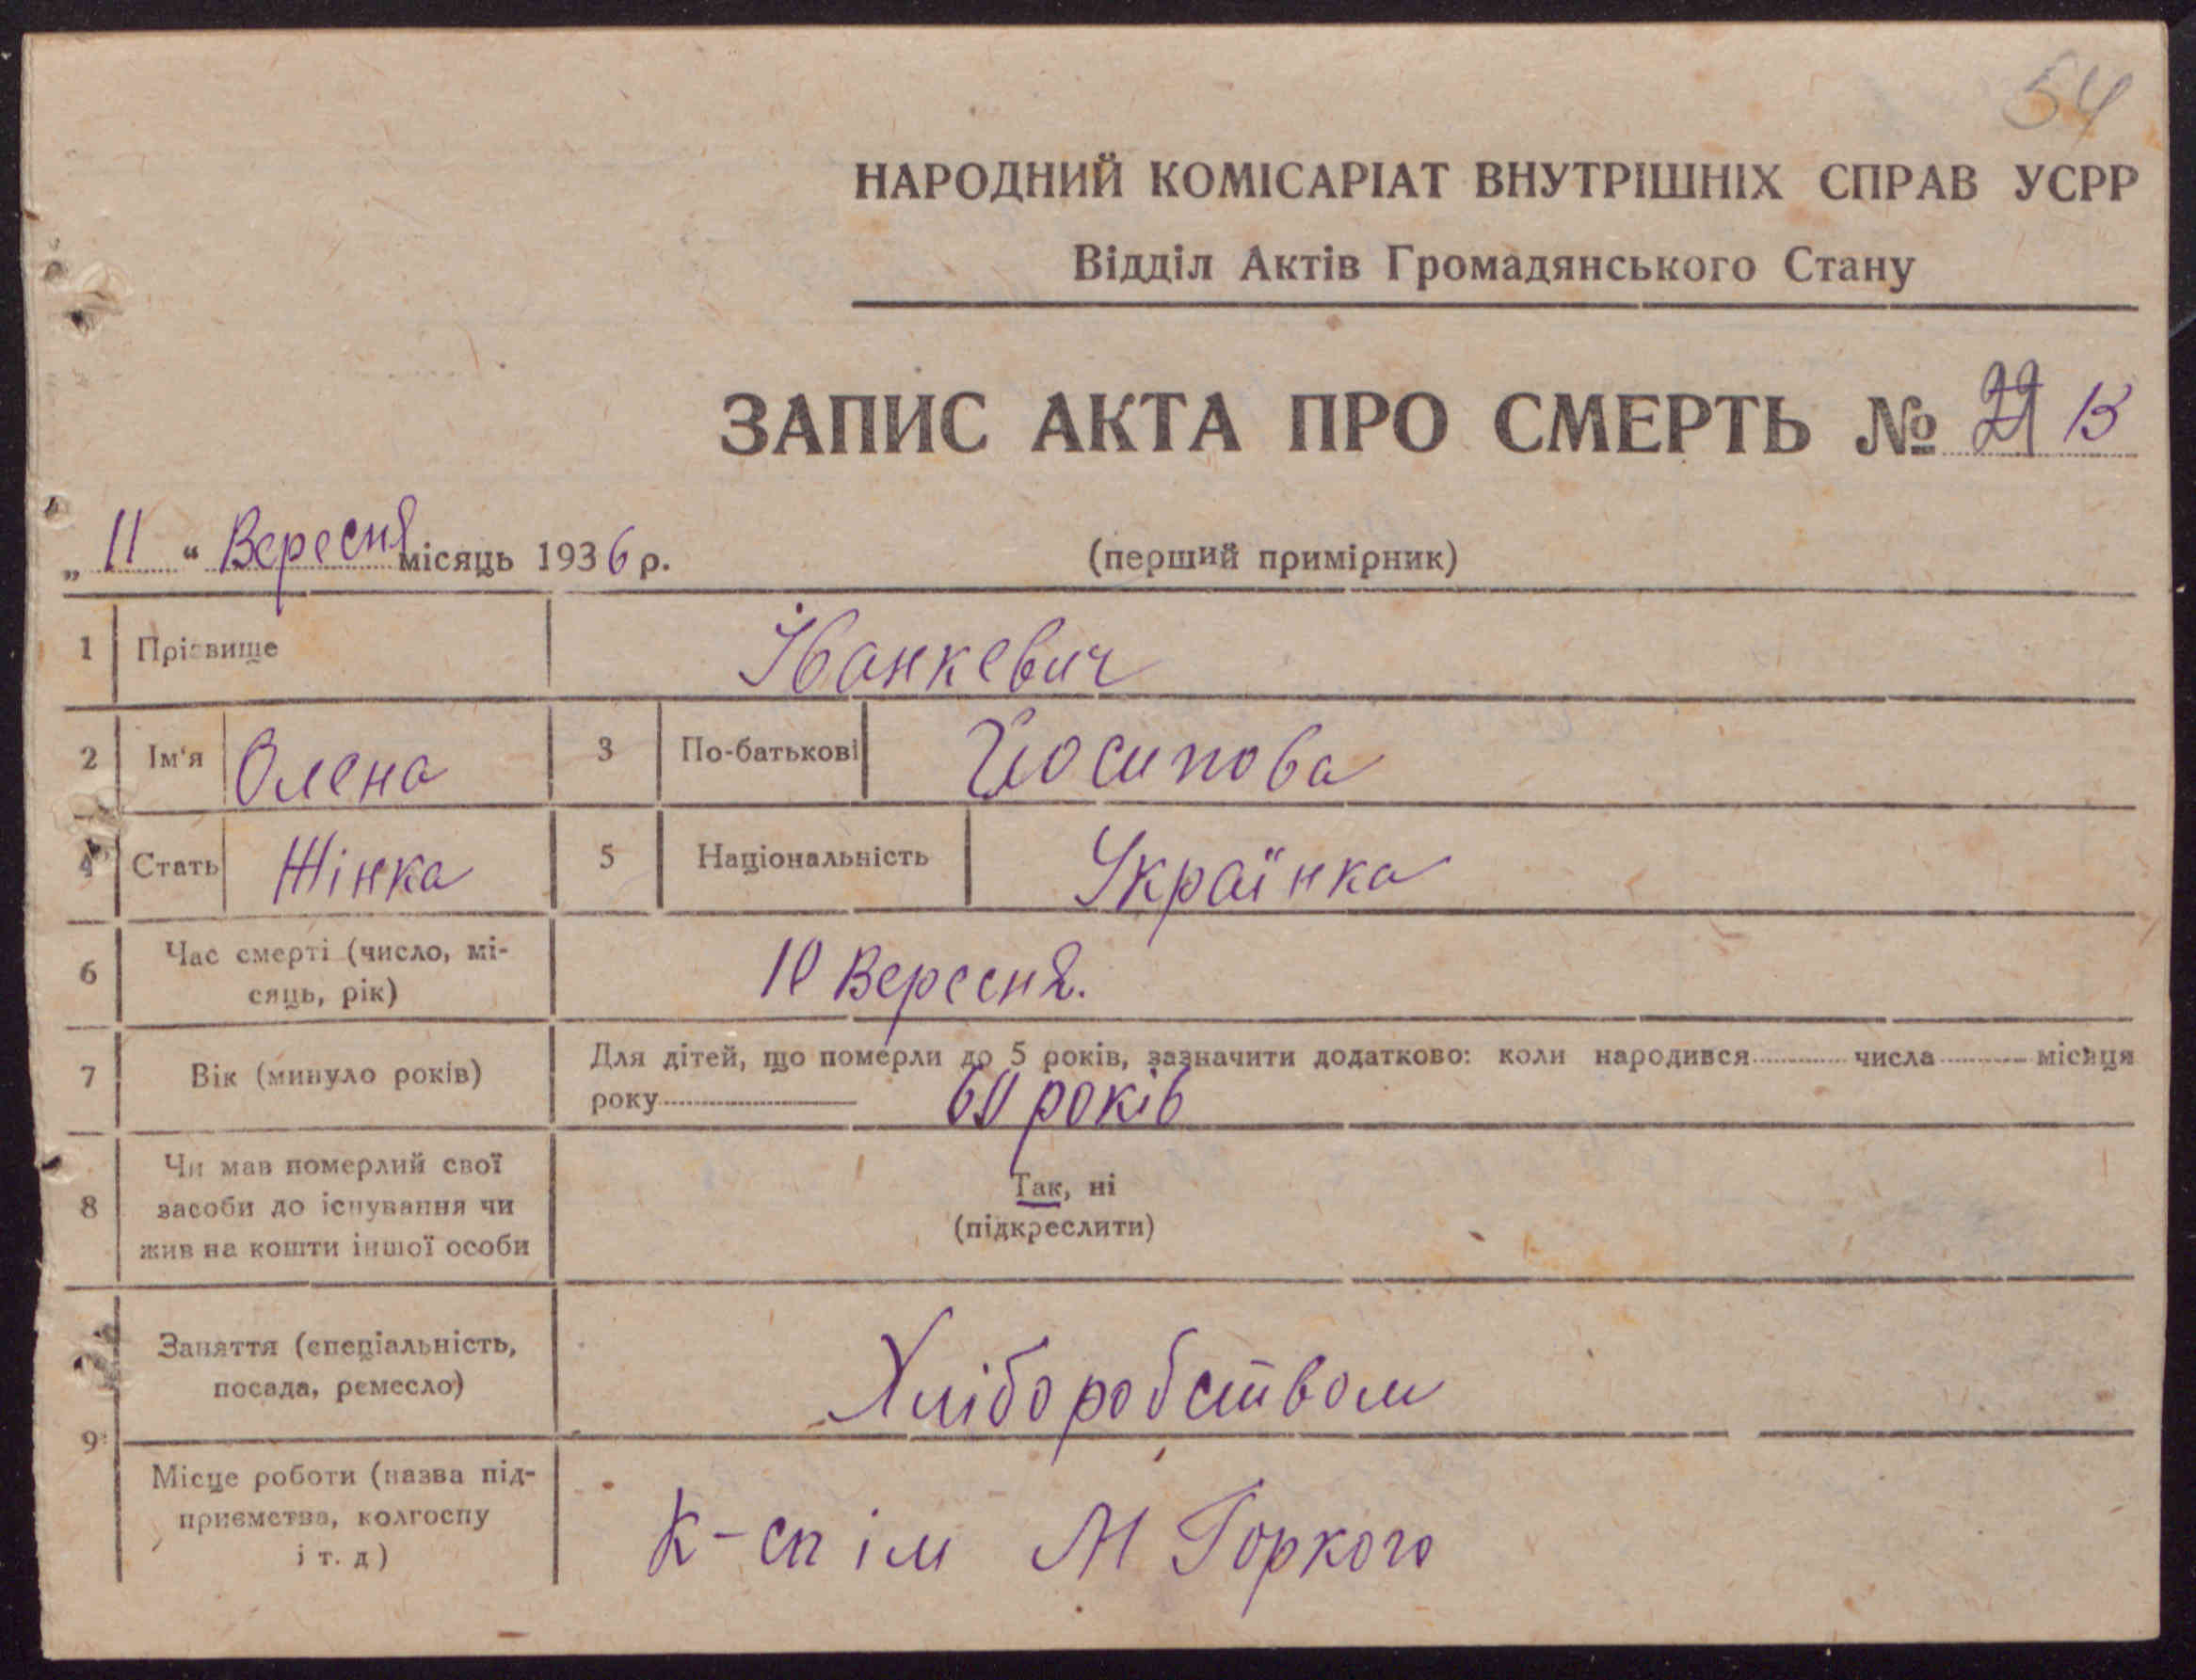 54
НАРОДНИЙ КОМІСАРІАТ ВНУТРІШНІХ СПРАВ УСРР
Відділ Актів Громадянського Стану
ЗАПИС АКТА ПРО СМЕРТЬ №
„ 11 “ Вересня місяць 1936 р. (перший примірник)
1 Прізвище Іванкевич
2 Ім'я Олена 3 По-батькові Йосипова
4 Стать Жінка 5 Національність Українка
6 Час смерті (число, мі-
сяць, рік) 10 Вересня.
7 Вік (минуло років) Для дітей, що померли до 5 років, зазначити додатково: коли народився числа місяця
року 60 років
8 Чи мав померлий свої
засоби до існування чи
жив на кошти іншої особи
Так, ні
(підкреслити)
9 Заняття (спеціальність,
посада, ремесло) Хліборобством
Місце роботи (назва під-
приємства, колгоспу
і т. д) К-сп ім М Горкого